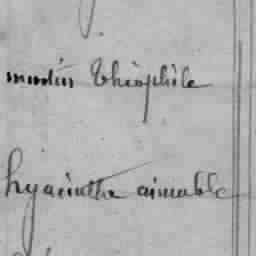 Théophile
hyacinthe aimable